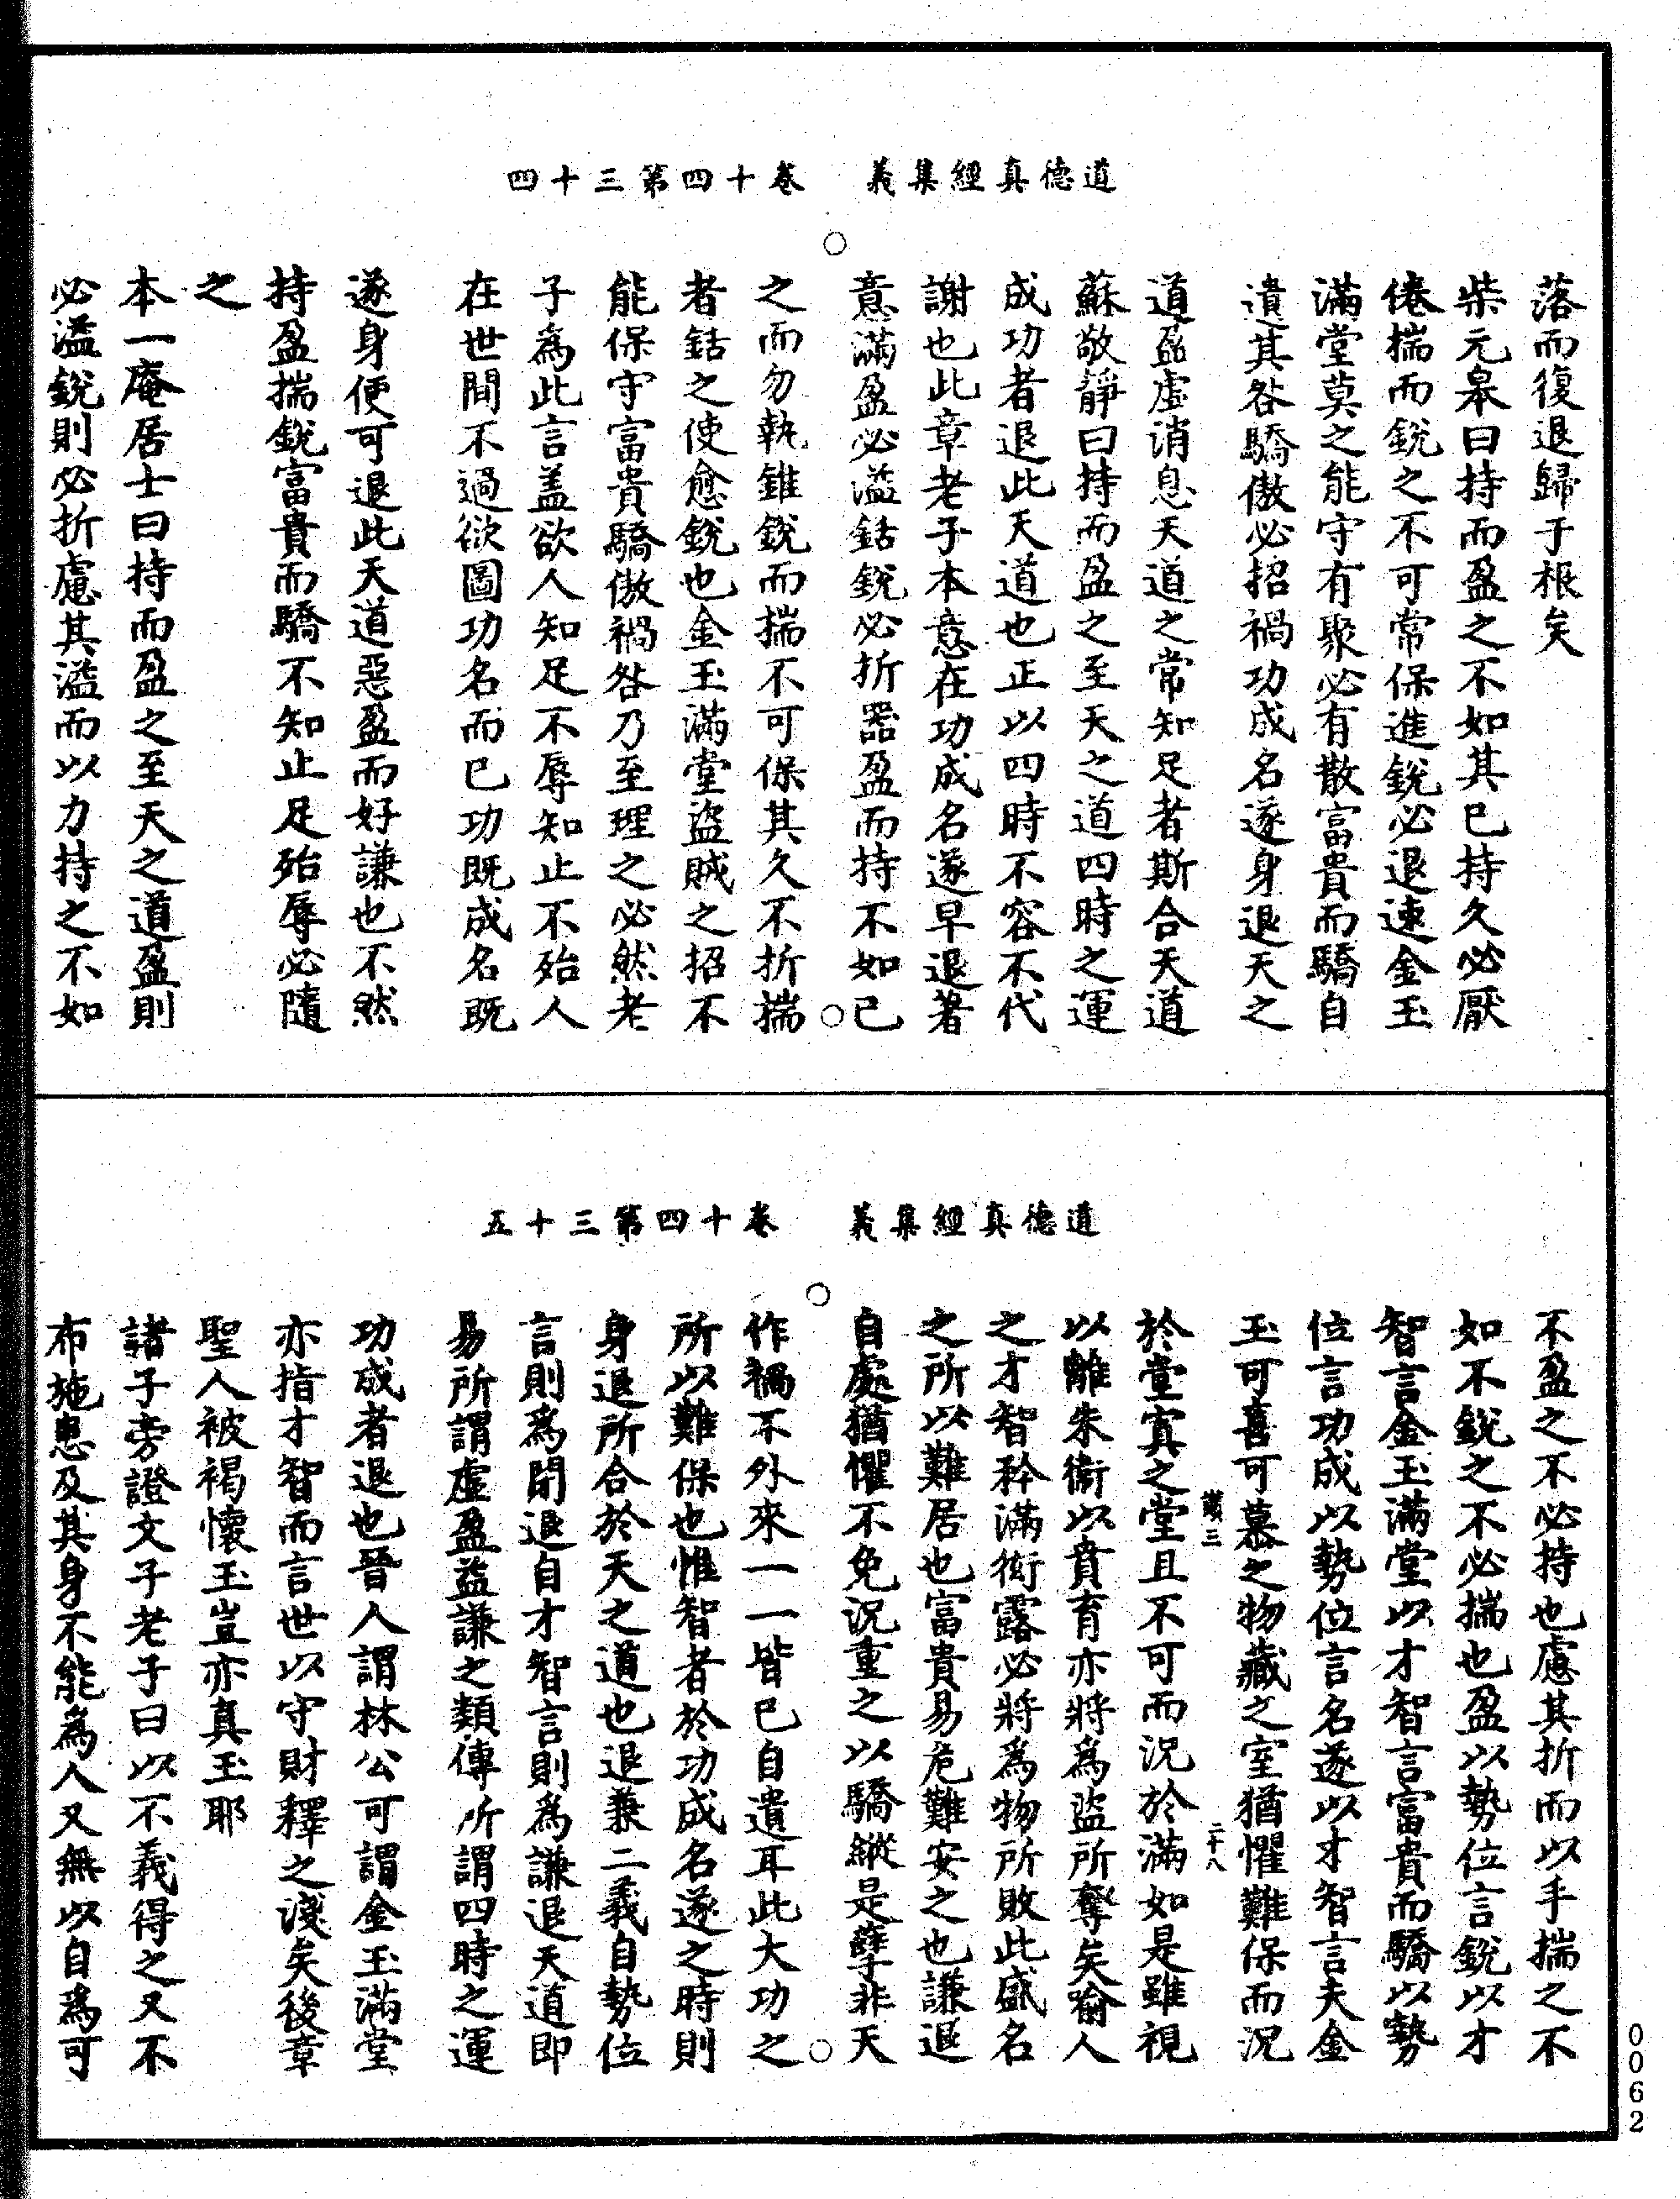 道德真經集義　卷十四第三十四
落而復退歸于根矣
柴元皋曰持而盈之不如其已持久必厭
倦揣而銳之不可常保進銳必退速金玉
滿堂莫之能守有聚必有散富貴而驕自
遺其咎驕傲必招禍功成名遂身退天之
道盈虛消息天道之常知足者斯合天道
蘇敬靜曰持而盈之至天之道四時之運
成功者退此天道也正以四時不容不代
謝也此章老子本意在功成名遂早退著
意滿盈必溢銛銳必折器盈而持不如已
之而勿執錐銳而揣不可保其久不折揣
者銛之使愈銳也金玉滿堂盜賊之招不
能保守富貴驕傲禍咎乃至理之必然老
子為此言盖欲人知足不辱知止不殆人
在世間不過欲圖功名而已功既成名既
遂身便可退此天道惡盈而好謙也不然
持盈揣銳富貴而驕不知止足殆辱必隨
之
本一庵居士曰持而盈之至天之道盈則
必溢銳則必折慮其溢而以力持之不如
道德真經集義　卷十四第三十五
不盈之不必持也慮其折而以手揣之不
如不銳之不必揣也盈以勢位言銳以才
智言金玉滿堂以才智言富貴而驕以勢
位言功成以勢位言名遂以才智言夫金
玉可喜可慕之物藏之室猶懼難保而況
三　二十八
於堂寘之堂且不可而況於滿如是雖視
以離朱衛以賁育亦將為盜所奪矣喻人
之才智矜滿衒露必將為物所敗此盛名
之所以難居也富貴易危難安之也謙退
自處猶懼不免況重之以驕縱是孽非天
作禍不外來一一皆已自遺耳此大功之
所以難保也惟智者於功成名遂之時則
身退所合於天之道也退兼二義自勢位
言則為閉退自才智言則為謙退天道即
易所謂虛盈益謙之類傳所謂四時之運
功成者退也晉人謂林公可謂金玉滿堂
亦指才智而言世以守財釋之淺矣後章
聖人被褐懷玉豈亦真玉耶
諸子旁證文子老子曰以不義得之又不
布施患及其身不能為人又無以自為可
0062